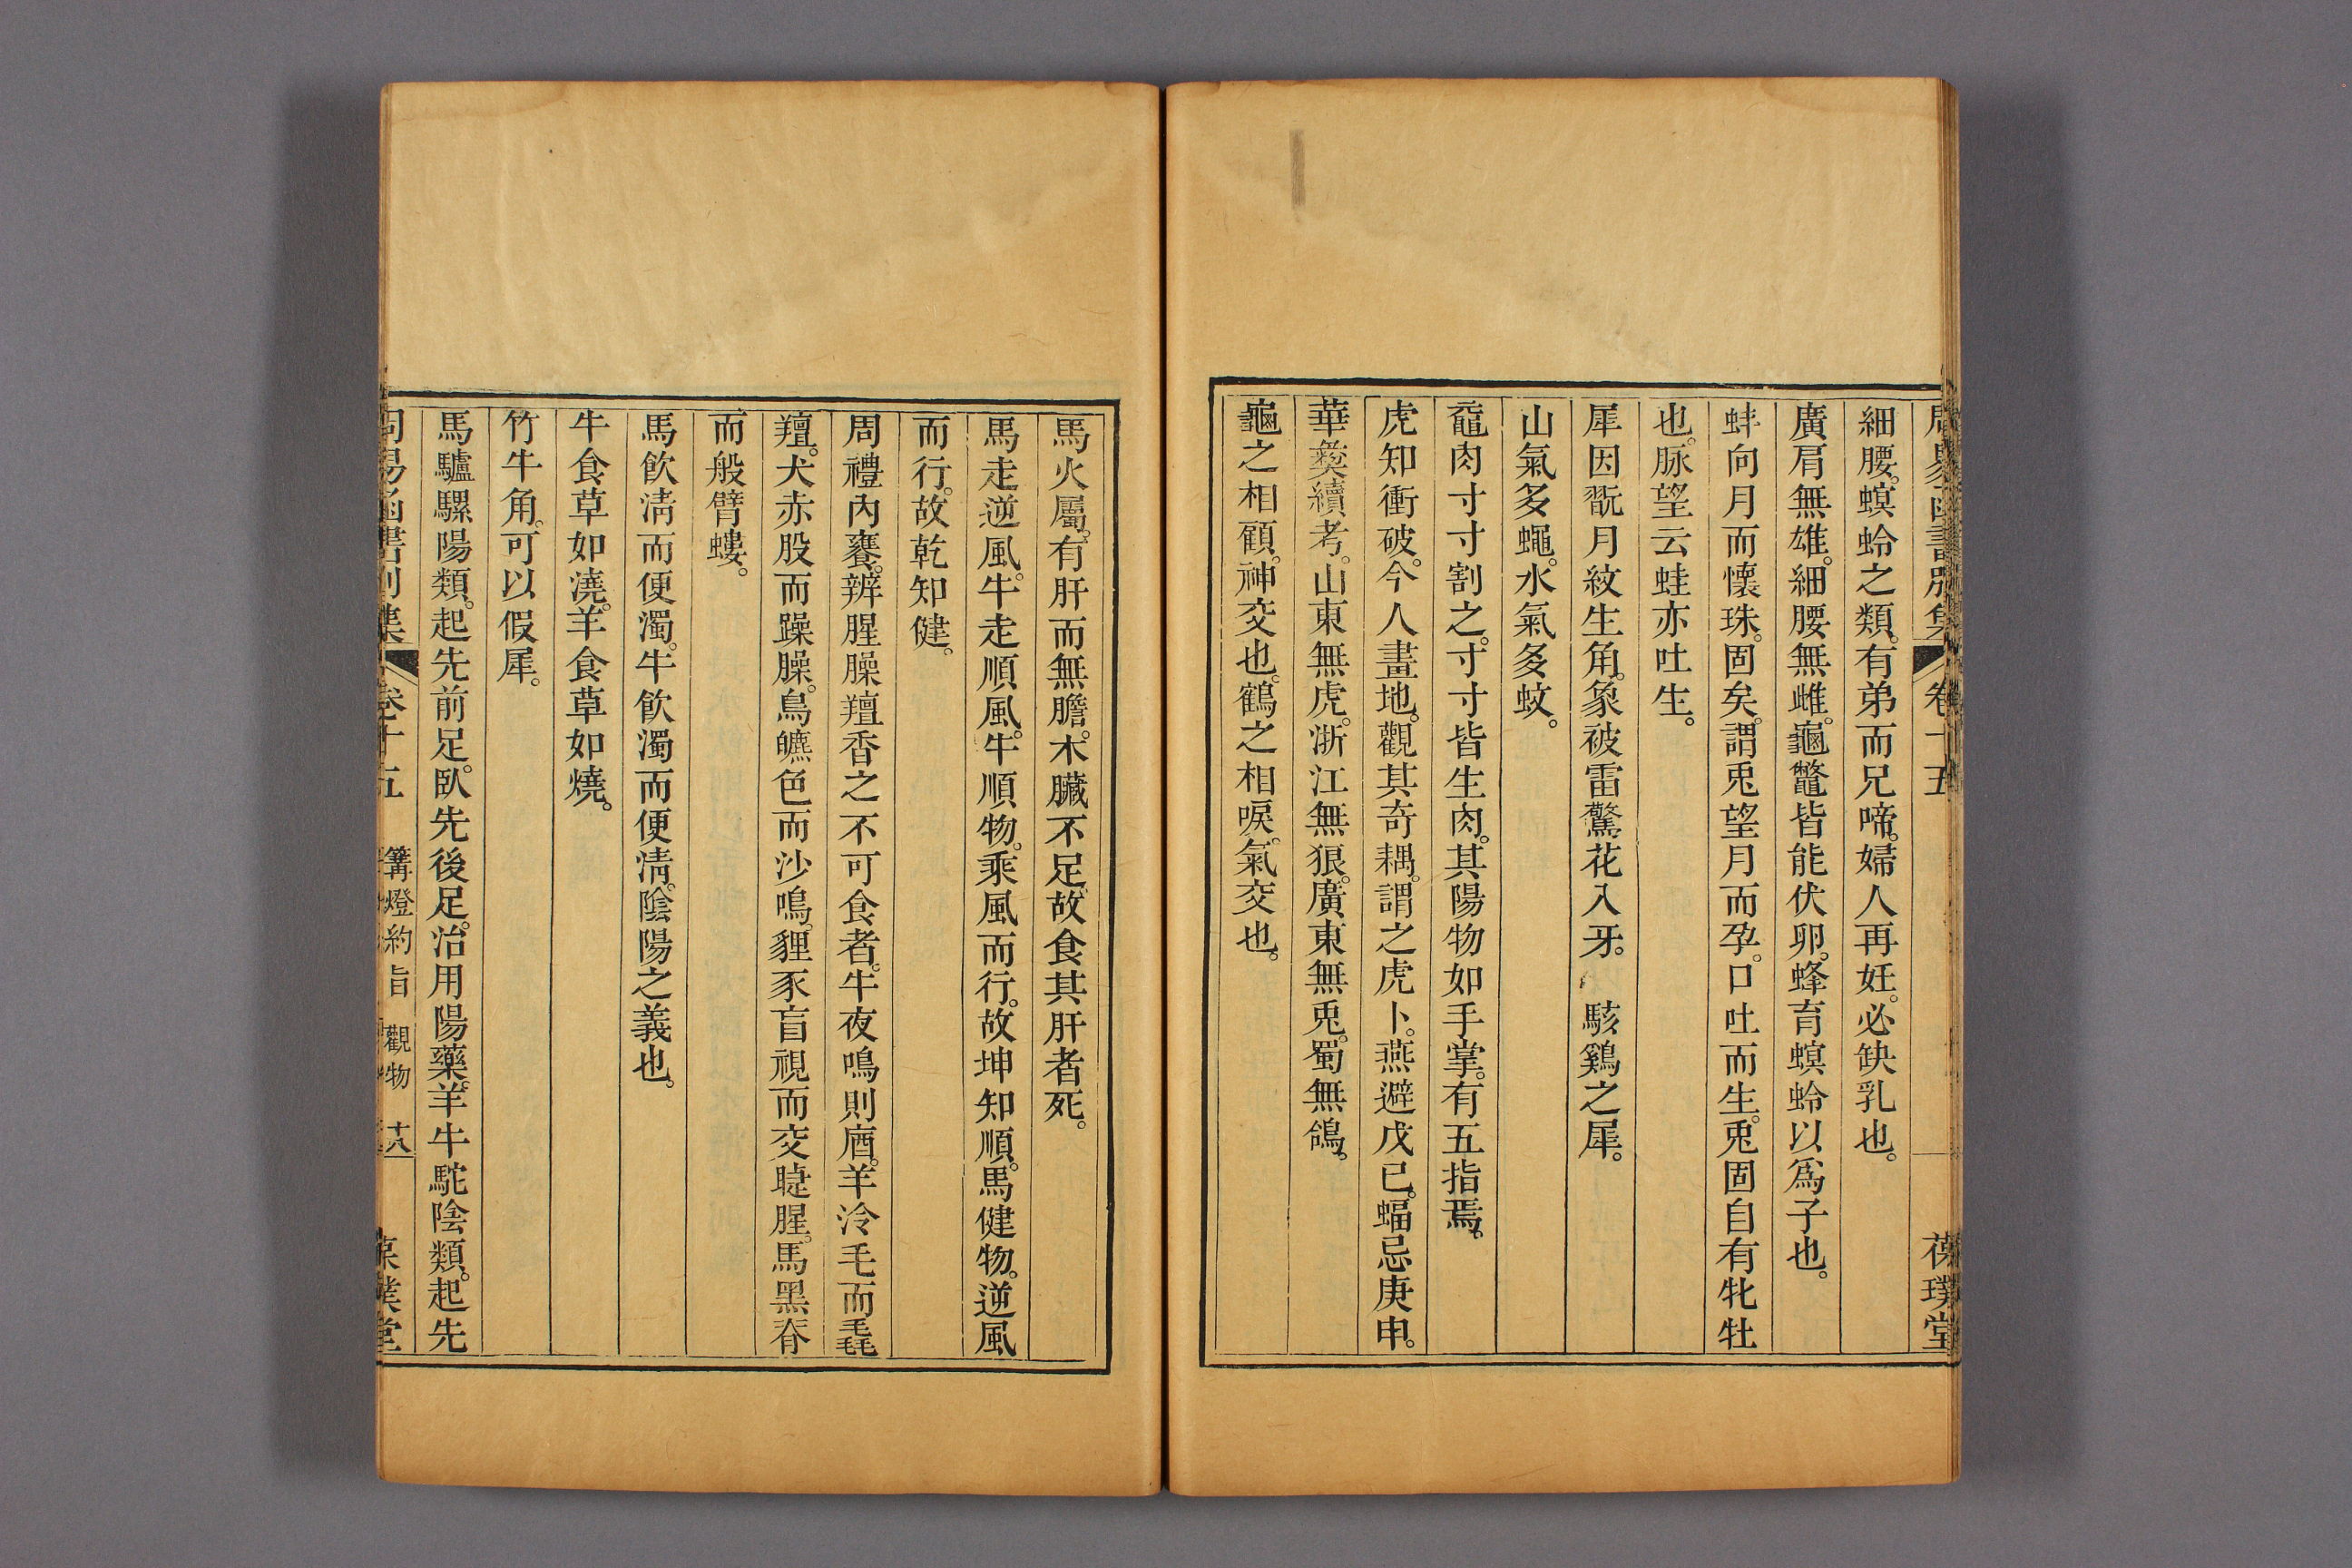 周易函書別集 卷十五 葆璞堂
細腰。螟蛉之類。有弟而兄啼。婦人再妊。必缺乳也。
廣肩無雄。細腰無雌。龜鼈皆能伏卵。蜂育螟蛉以爲子也。
蚌向月而懷珠。固矣。謂兎望月而孕。口吐而生。兎固自有牝牡
也。脉望云蛙亦吐生。
犀因翫月紋生角。象被雷驚花入牙。 駭鷄之犀。
山氣多蠅。水氣多蚊。
黿肉寸寸割之。寸寸皆生肉。其陽物如手掌。有五指焉。
虎知衝破。今人畫地。觀其奇耦。謂之虎卜。燕避戊已。蝠忌庚申。
華彝續考。山東無虎。浙江無狼。廣東無兎。蜀無鴿。
龜之相顧。神交也。鶴之相唳。氣交也。
馬火屬。有肝而無膽。木臟不足。故食其肝者死。
馬走逆風。牛走順風。牛順物。乘風而行。故坤知順。馬健物。逆風
而行。故乾知健。
周禮內饔。辨腥臊羶香之不可食者。牛夜鳴則庮。羊泠毛而毳
羶。犬赤股而躁臊。鳥皫色而沙鳴。貍豕盲視而交睫腥。馬黑脊
而般臂螻。
馬飲淸而便濁。牛飲濁而便淸。陰陽之義也。
牛食草如澆。羊食草如燒。
竹牛角。可以假犀。
馬驢騾陽類。起先前足。臥先後足。治用陽藥。羊牛駝陰類。起先
周易函書別集 卷十五 篝燈約旨 觀物 十八 葆璞堂